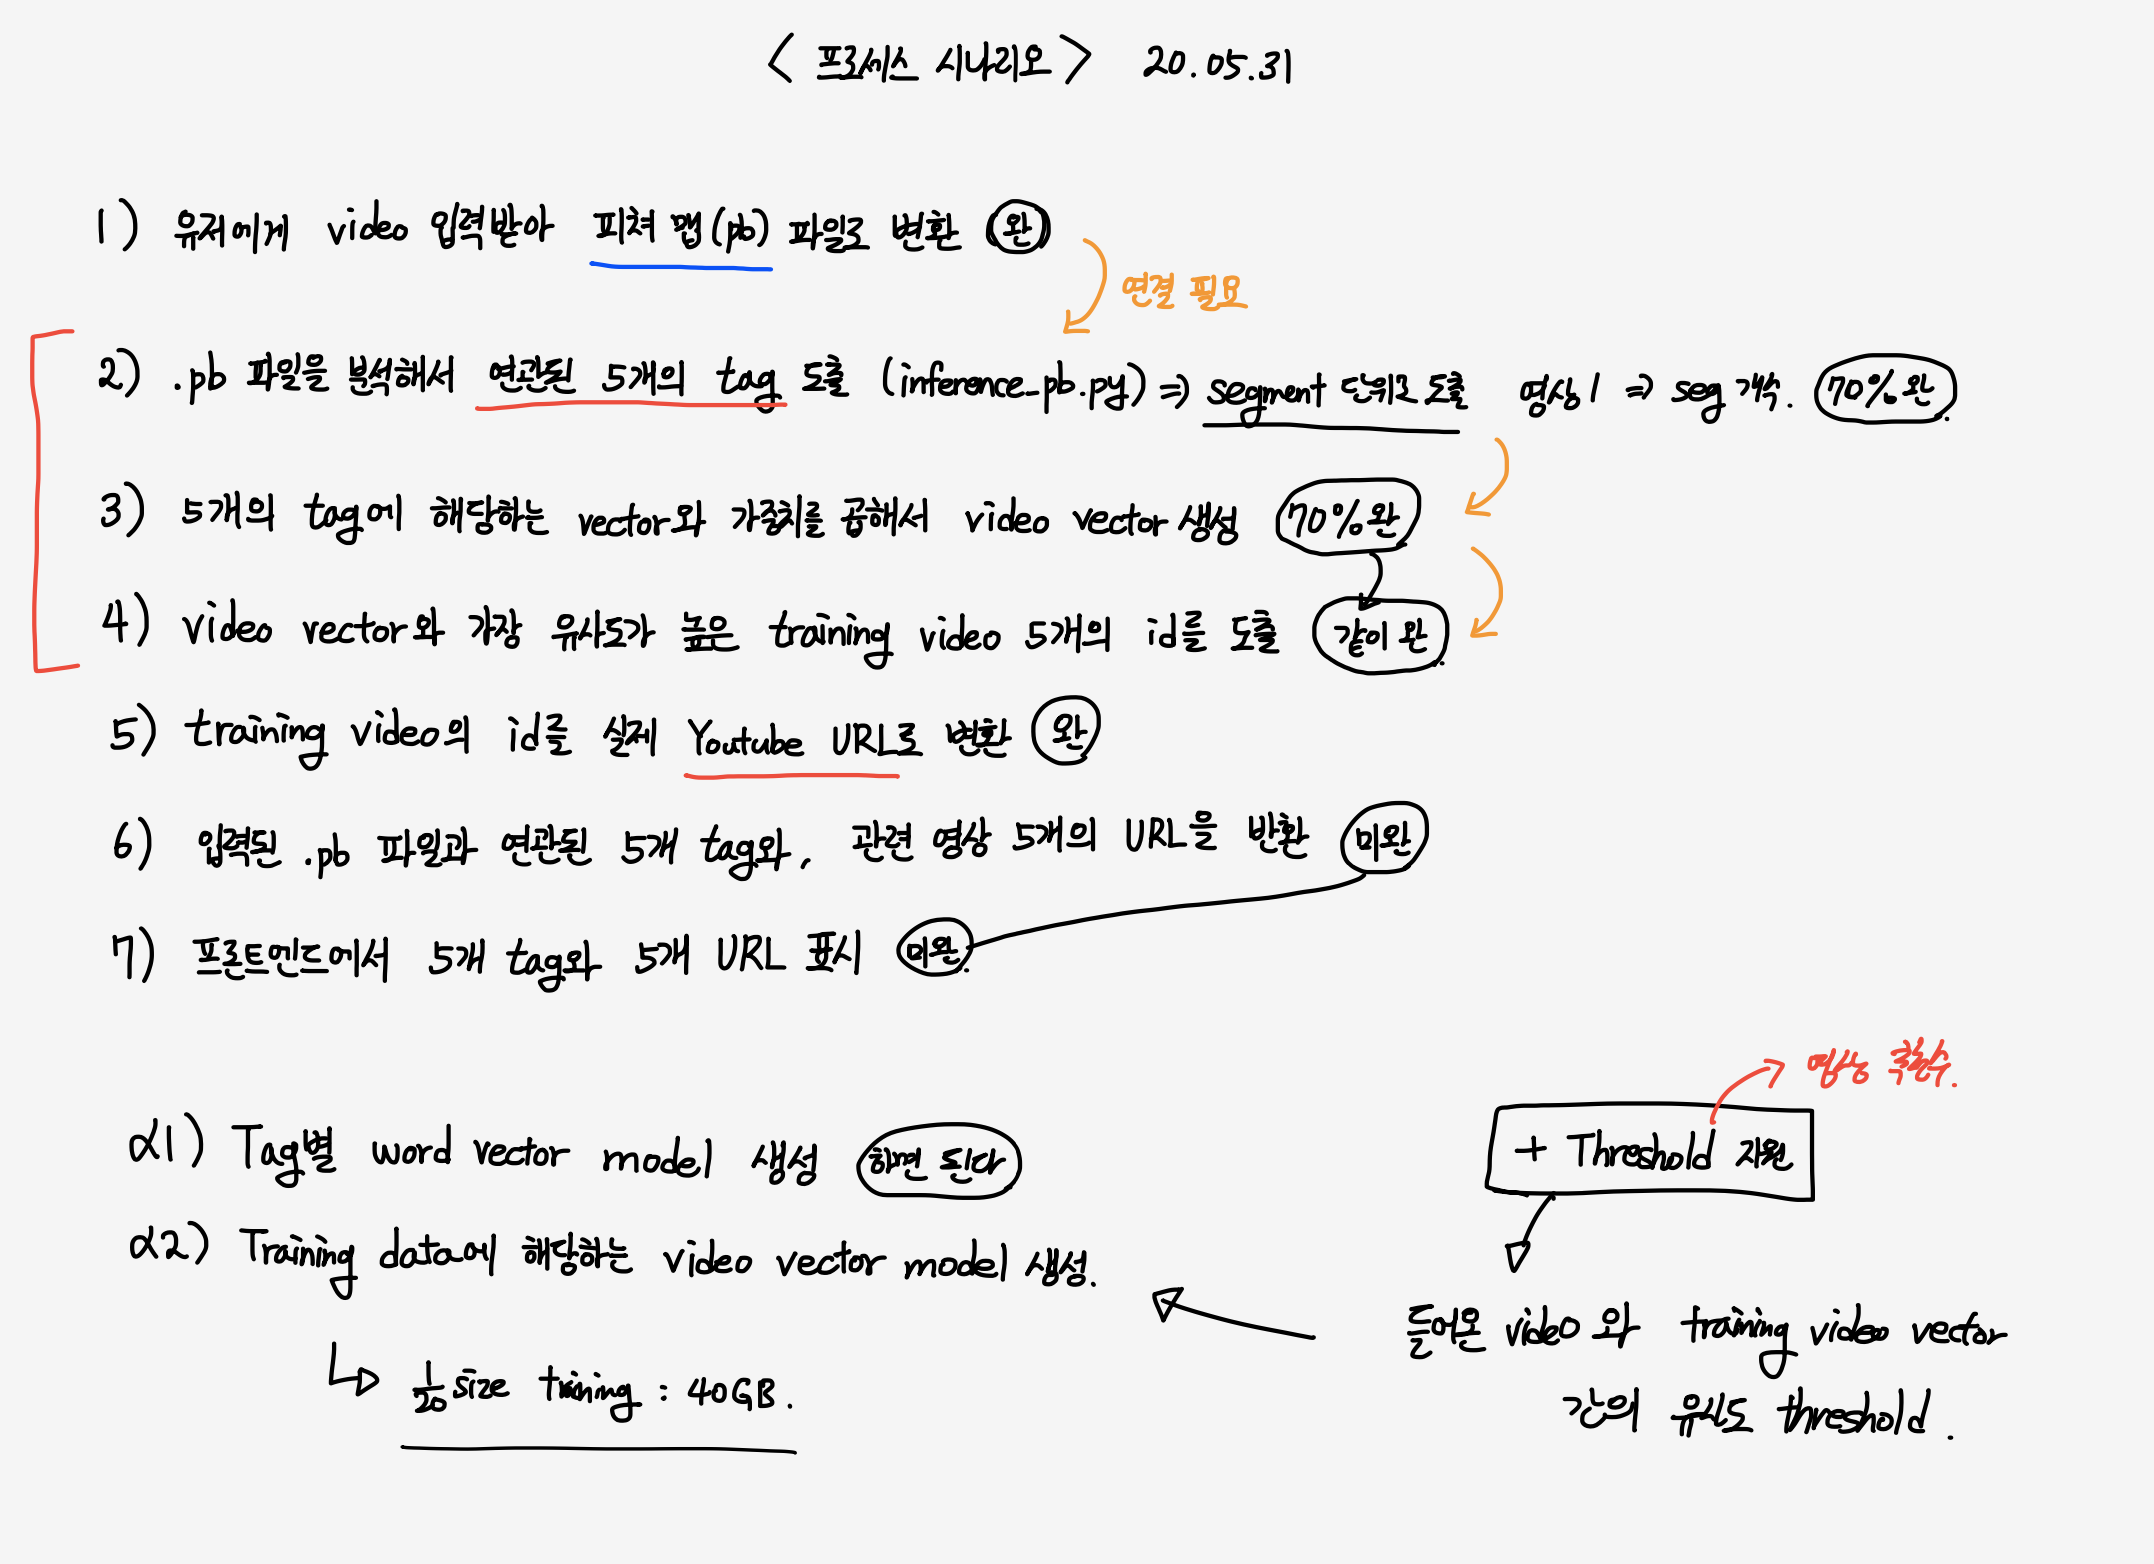 < 프로세스 시나리오 > 20.05.31
1) 유저에게 video 입력받아 피쳐 맵(pb) 파일로 변환 (완)
연결 필요
2) .pb 파일을 분석해서 연관된 5개의 tag 도출 (inference_pb.py) ⇒ segment 단위로 도출 영상 1 ⇒ seg 개수. 70%완.
3) 5개의 tag에 해당하는 vector와 가중치를 곱해서 video vector 생성 70%완
4) video vector와 가장 유사도가 높은 training video 5개의 id를 도출 같이 완.
5) training video의 id를 실제 Youtube URL로 변환 완
6) 입력된 .pb 파일과 연관된 5개 tag와, 관련 영상 5개의 URL을 반환 미완
7) 프론트엔드에서 5개 tag와 5개 URL 표시 미완.
영상
α1) Tag별 word vector model 생성 하면 된다
+ Threshold 지원
α2) Training data에 해당하는 video vector model 생성.
들어온 video 와 training video vector
간의 유사도 threshold.
1/20 size training : 40GB.